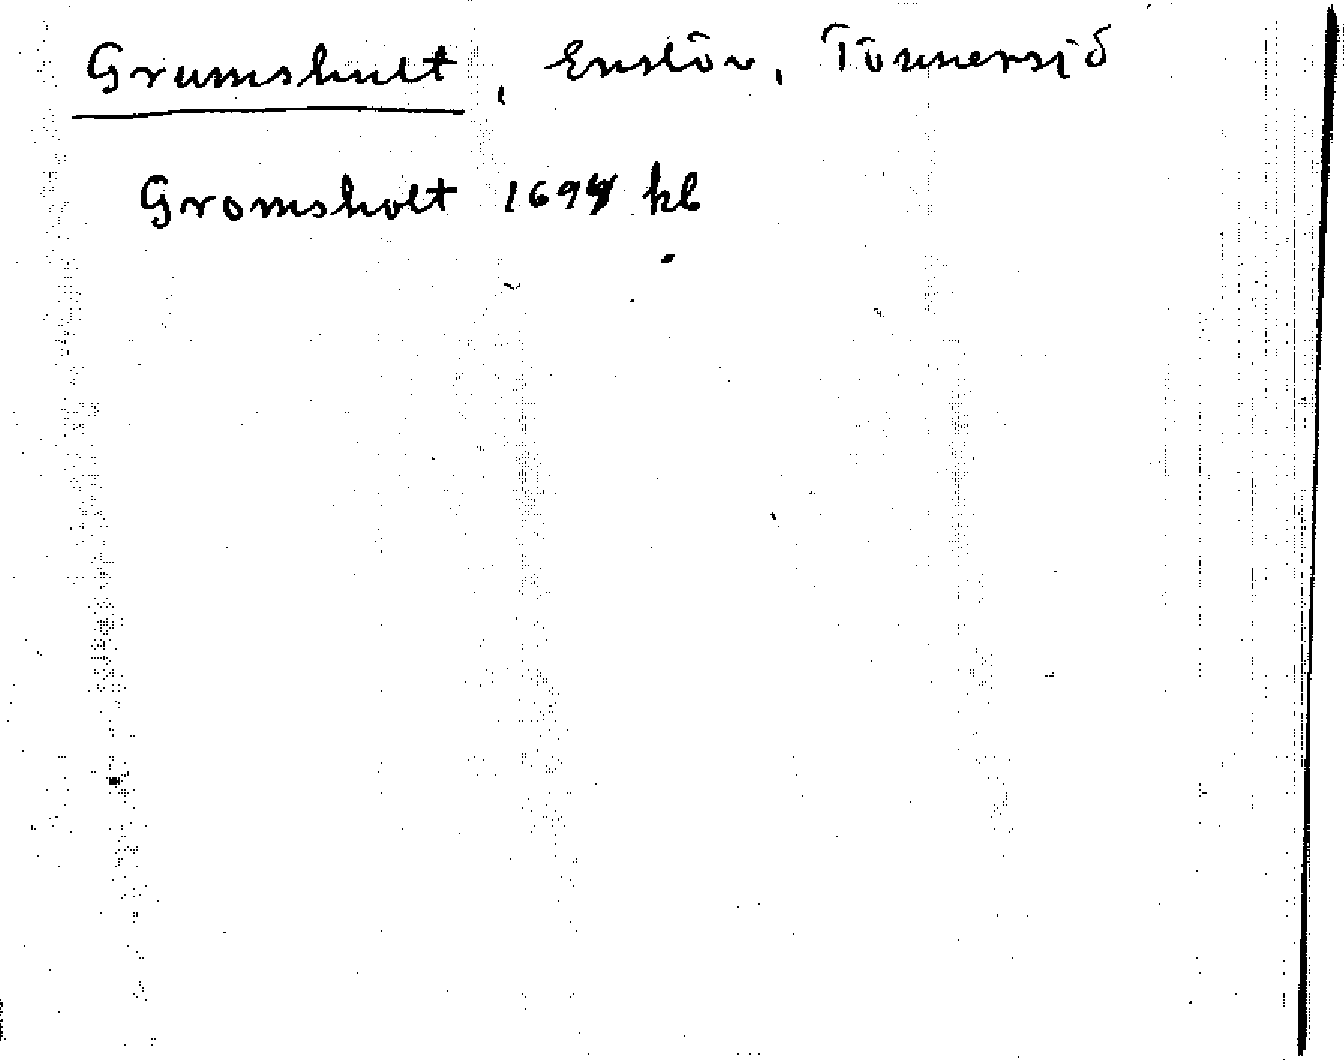 Grumshult, Enslöv, Tönnersjö
Gromsholt kb